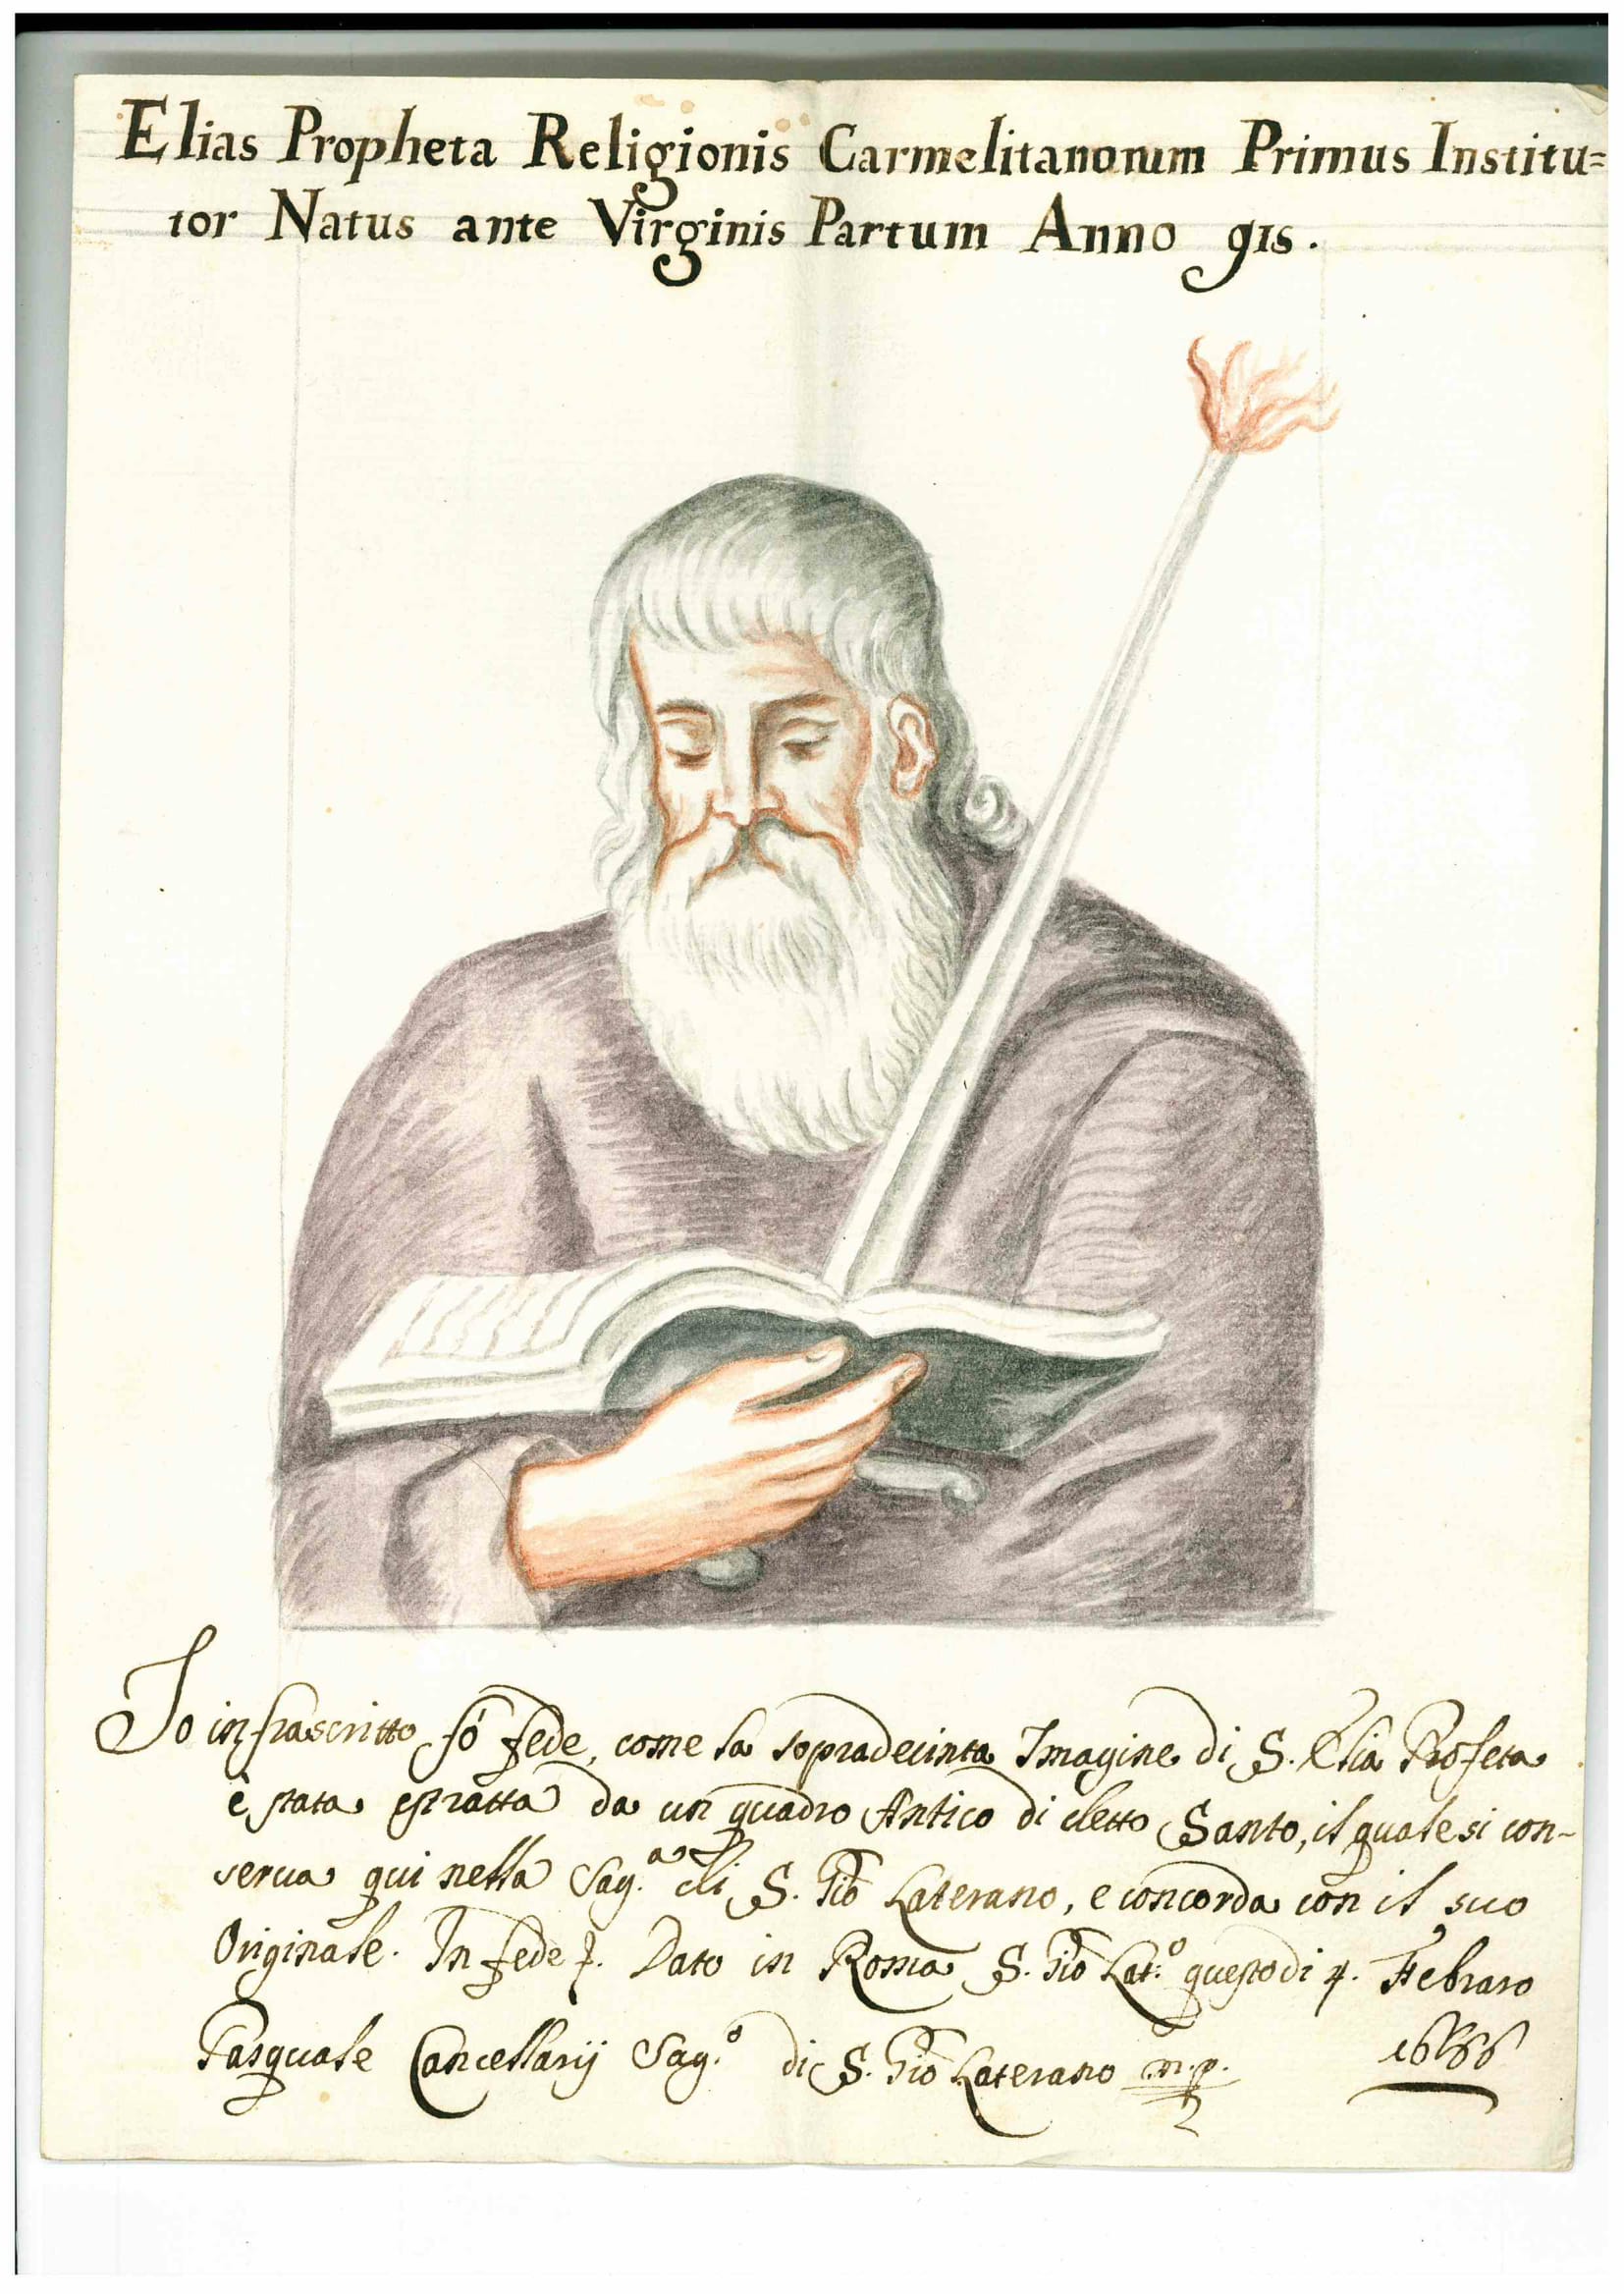 Elias Propheta Religionis Carmelitanorum Primus Institu=
tor Natus ante Virginis Partum Anno 915.
Io infrascritto fò fede, come la sopradecinta Imagine di S. Elia Profeta
è stata estratta da un quadro Antico di detto Santo, il quale si con-
serua qui nella Sag.a di S. Gio Laterano, e concorda con il suo
Originale. In fede &. Dato in Roma S. Gio Lat.o questo di 4. Febraro
Pasquale Cancellarij Sag.o di S. Gio Laterano m.p. 1686